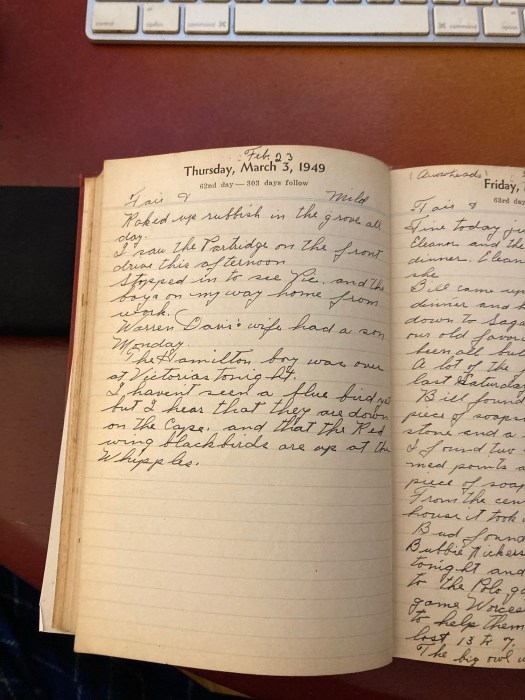 control
option
command
command
option
Feb. 23
Thursday, March 3, 1949
62nd day — 303 days follow
Fair & Mild
Raked up rubbish in the grove all
day.
I saw the Partridge on the front
drive this afternoon
Stopped in to see Vic, and the
boys on my way home from
work.
Warren Davis wife had a son
Monday.
The Hamilton boy was over
at Victorias tonight.
I haven't seen a blue bird yet
but I hear that they are down
on the Cape. and that the Red
wing blackbirds are up at the
Whipples.
(Arrowheads)
Friday,
63rd day
Fair &
Fine today
Eleanor and the
dinner. Eleanor
she
Bill came up
dinner and
down to
our old
been all but
A lot of the
last Saturday
Bill found
piece of soaps
stone and a
I found two
points
piece of soap
From the
house it took
Bud found
Bubbie
tonight and
to the Polo
game
to help them
lost 13 to 7.
The big owl